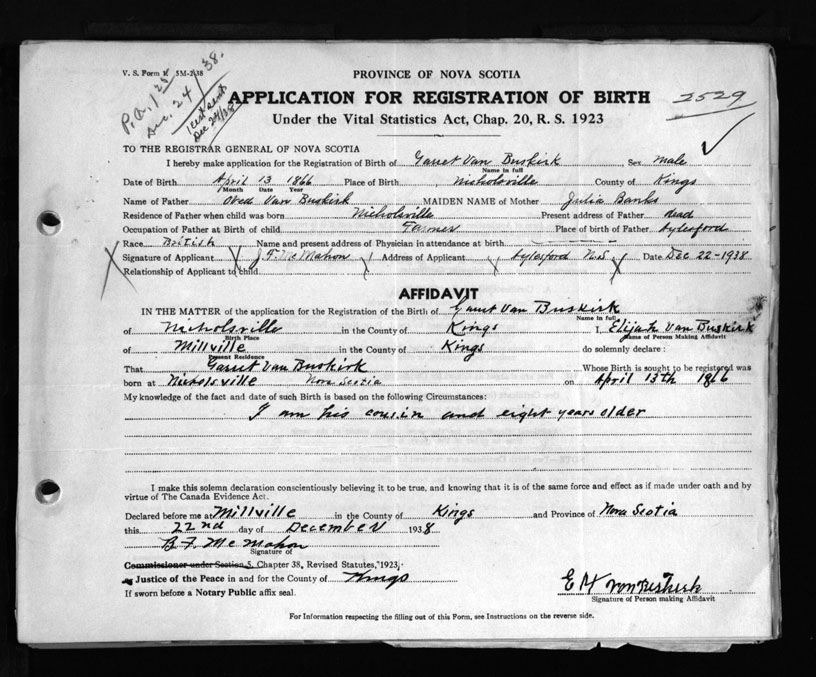 V. S. Form 5M-2-38
P.A. 1
Dec. 24/38.
Dec 24/38
PROVINCE OF NOVA SCOTIA
APPLICATION FOR REGISTRATION OF BIRTH
2529
Under the Vital Statistics Act, Chap. 20, R. S. 1923
TO THE REGISTRAR GENERAL OF NOVA SCOTIA
I hereby make application for the Registration of Birth of Garret Van Buskirk Sex male
Name in full
Date of Birth April 13 1866 Place of Birth Nicholsville County of Kings
Month Date Year
Name of Father Obed Van Buskirk MAIDEN NAME of Mother Julia Banks
Residence of Father when child was born Nicholsville Present address of Father dead
Occupation of Father at Birth of child Farmer Place of birth of Father Aylesford
Race British Name and present address of Physician in attendance at birth
Signature of Applicant J. F. McMahon Address of Applicant Aylesford N.S. Date Dec 22-1938
Relationship of Applicant to child
AFFIDAVIT
IN THE MATTER of the application for the Registration of the Birth of Garret Van Buskirk
Name in full
of Nicholsville in the County of Kings I, Elijah Van Buskirk
Birth Place Name of Person Making Affidavit
of Millville in the County of Kings do solemnly declare :
Present Residence
That Garret Van Buskirk Whose Birth is sought to be registered was
born at Nicholsville Nova Scotia on April 13th 1866
My knowledge of the fact and date of such Birth is based on the following Circumstances:
I am his cousin and eight years older
I make this solemn declaration conscientiously believing it to be true, and knowing that it is of the same force and effect as if made under oath and by
virtue of The Canada Evidence Act.
Declared before me at Millville in the County of Kings and Province of Nova Scotia
this 22nd day of December 1938
B. F. McMahon
Signature of
Commissioner under Section 5, Chapter 38, Revised Statutes, 1923,
Justice of the Peace in and for the County of Kings
E H VanBuskirk
If sworn before a Notary Public affix seal.
Signature of Person making Affidavit
For Information respecting the filling out of this Form, see Instructions on the reverse side.